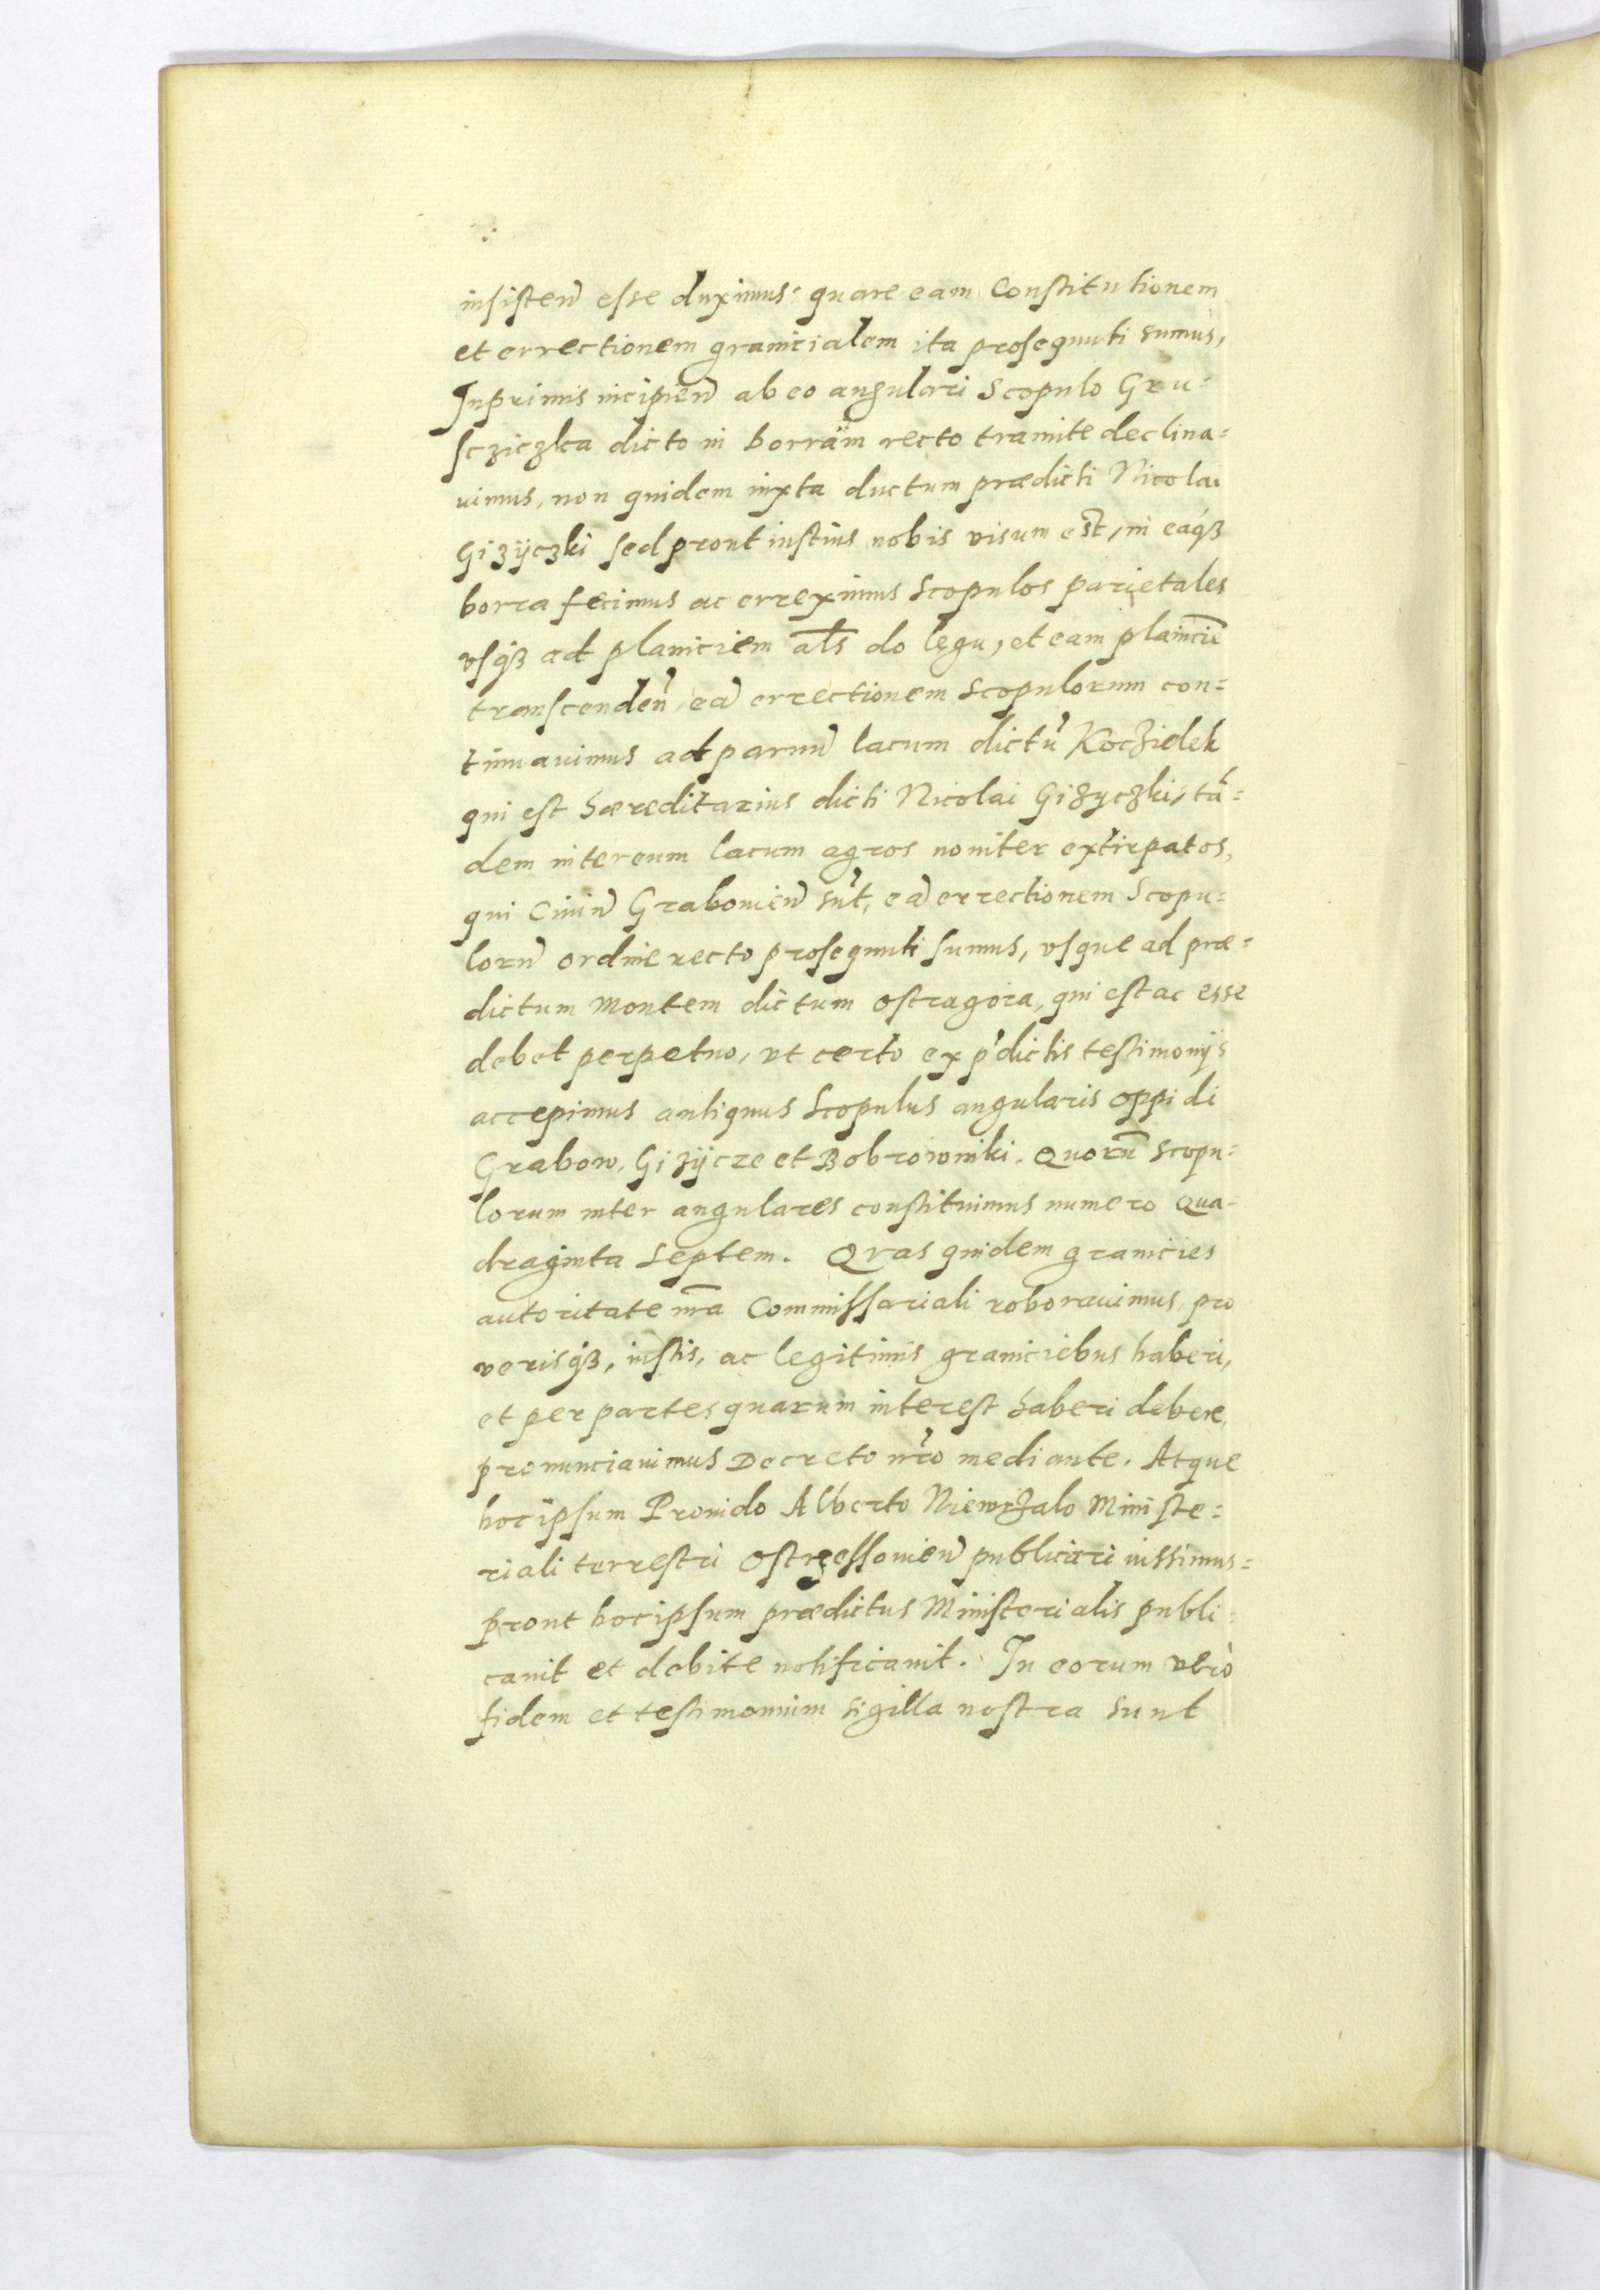 insisten̄ esse duximus: quare eam Constitutionem
et errectionem granicialem ita prosequuti sumus,
Inprimis incipien̄ ab eo angulari Scopulo Gru=
scziczka dicto in borram recto tramite declina=
uimus, non quidem iuxta ductum prædicti Nicolai
Giżÿczki sed prout iustius nobis visum est, in eaqȝ
borra fecimus ac erreximus Scopulos parietales
vsqȝ ad planiciem al̄s do lęgu, et eam planiciē
transcenden̄, eā errectionem Scopulorum con=
tinuauimus ad paruū lacum dictū Koczidek
qui est hæreditarius dicti Nicolai Giżyczki, tā=
dem inter eum lacum agros nouiter extirpatos,
qui Ciuiū Grabouien̄ sūt, eā errectionem Scopu=
lorū ordine recto prosequuti sumus, vsque ad præ=
dictum Montem dictum ostragora, qui est ac esse
debet perpetuo, vt certo ex p̄dictis testimonijs
accepimus antiquus Scopulus angularis oppidi
Grabow, Giżÿcze et Bobrowniki. Quorū scopu=
lorum inter angulares constituimus numero Qua=
draginta Septem. Qvas quidem granicies
autoritate nr̄a Commissariali roborauimus, pro
verisqȝ, iustis, ac legitimis graniciebus haberi,
et per partes quarum interest haberi debere,
pronunciauimus Decreto nr̄o mediante. Atque
hoc ipsum Prouido Alberto Niewrzalo Ministe=
riali terrestri Ostrzessouien̄ publicari iussimus=
prout hoc ipsum prædictus Ministerialis publi=
cauit et debite notificauit. In eorum vero
fidem et testimonium sigilla nostra sunt